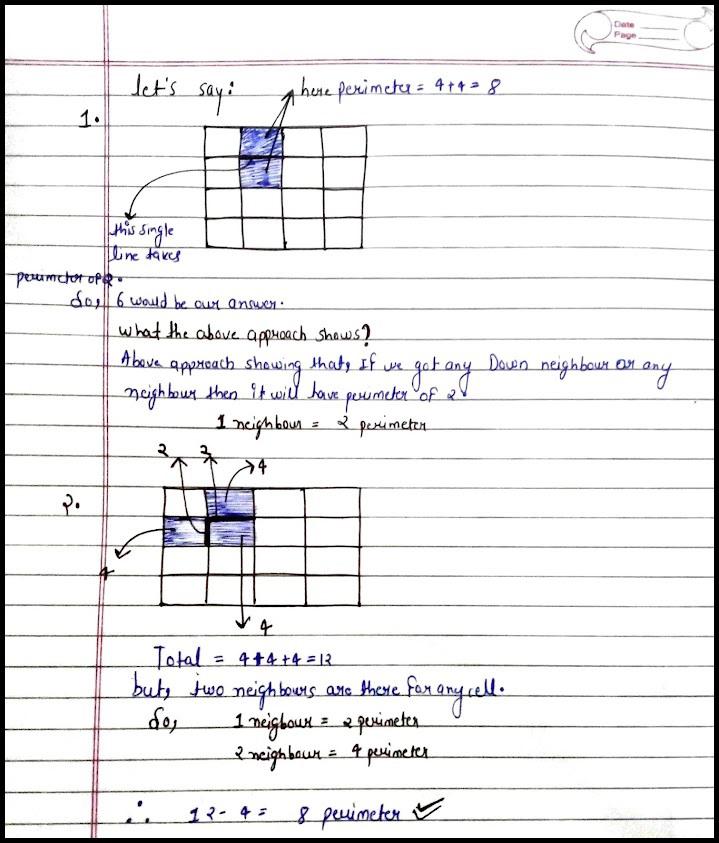 Date
Page
let's say:
here perimeter = 4+4 = 8
1.
this single
line takes
perimeter of 2.
So, 6 would be our answer.
What the above approach shows?
Above approach showing that, If we got any Down neighbour or any
neighbour then it will have perimeter of 2
1 neighbour = 2 perimeter
2 2 4
2.
4
4
Total = 4+4+4 = 12
but, two neighbours are there for any cell.
So, 1 neigbour = 2 perimeter
2 neighbour = 4 perimeter
∴ 12 - 4 = 8 perimeter ✓